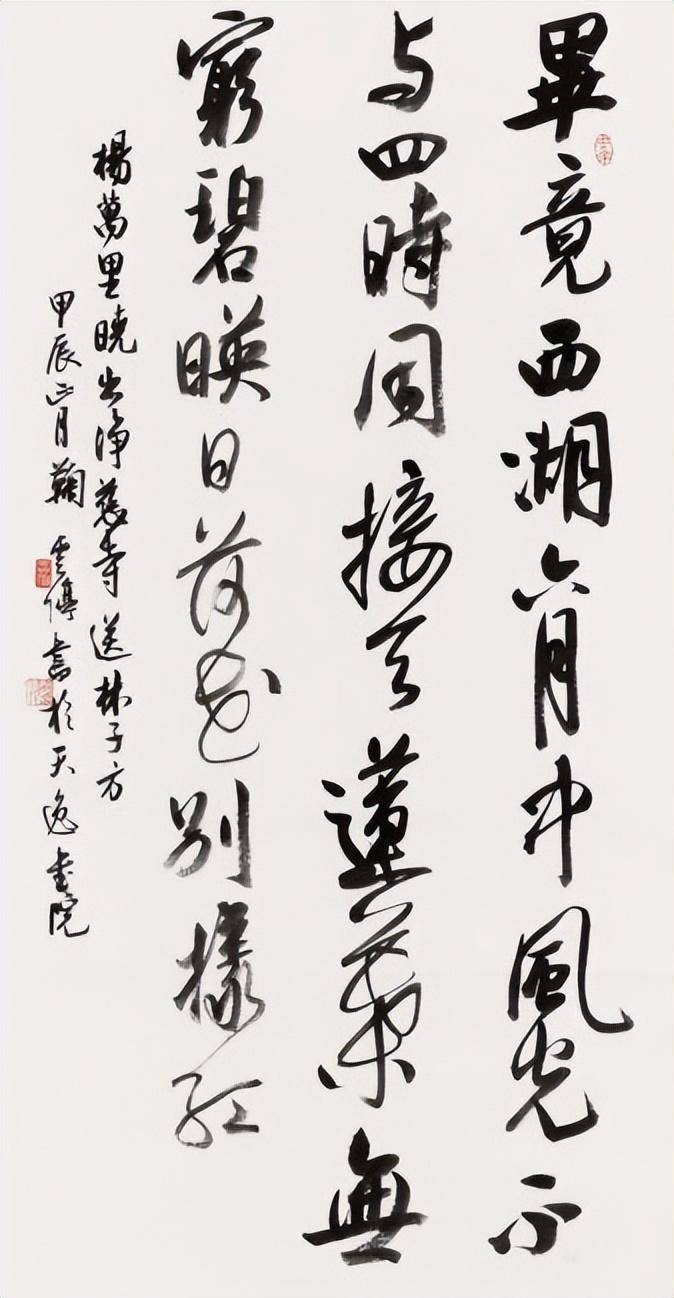 畢竟西湖六月中風光不
与四時同接天蓮葉無
窮碧暎日荷花别樣红
楊萬里曉出淨慈寺送林子方
甲辰正月鞠雲博書於天逸書院